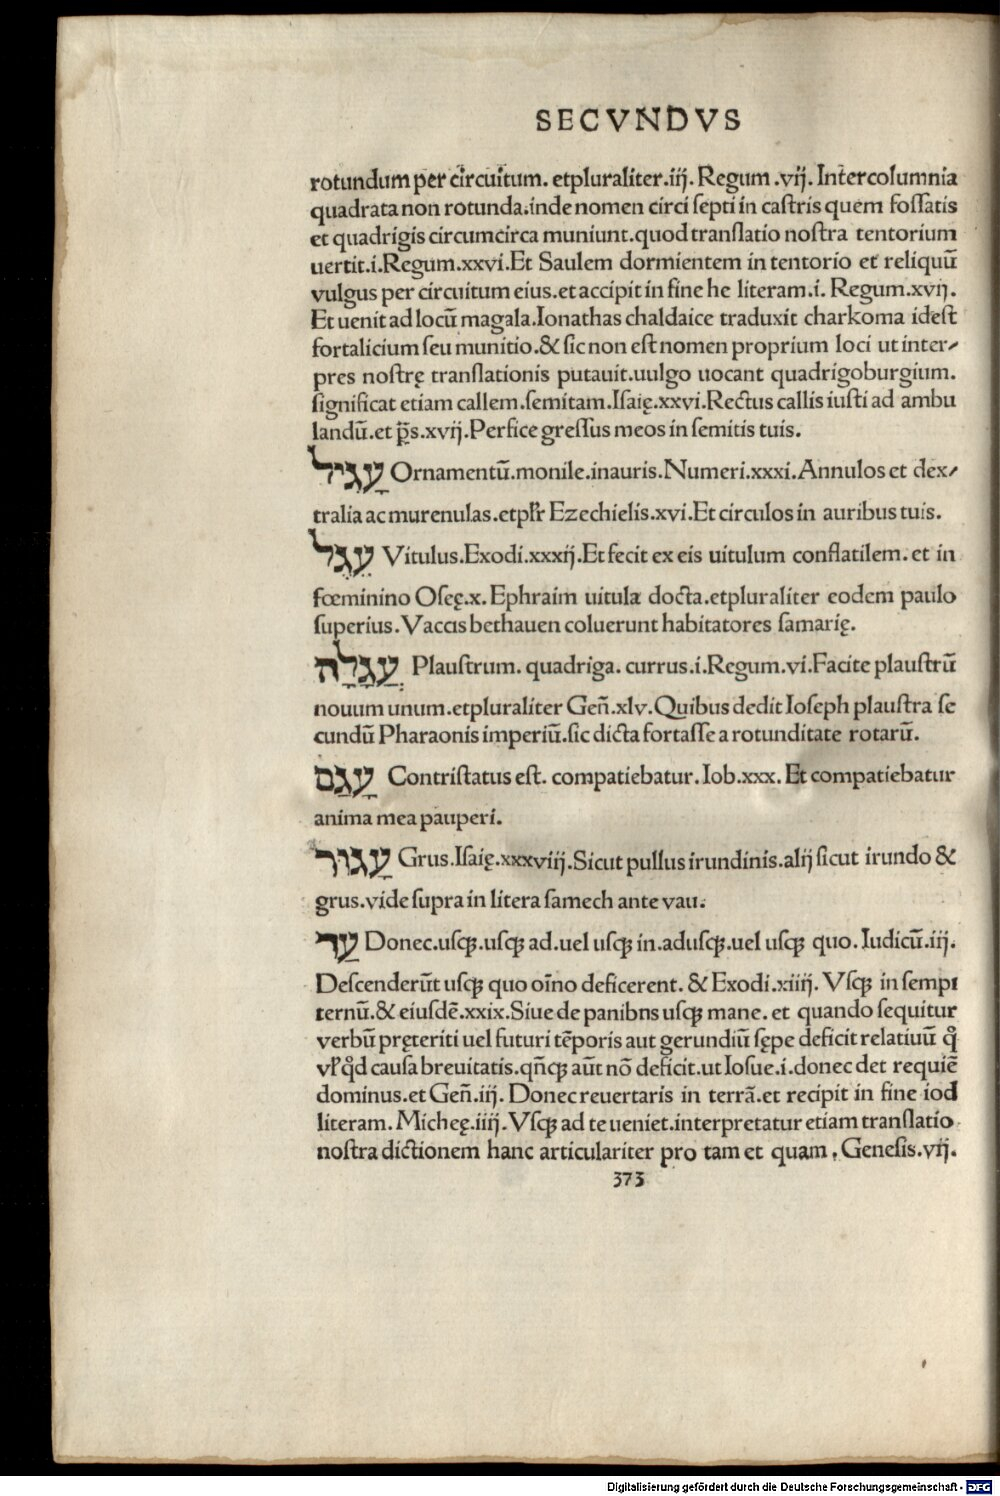 SECVNDVS
rotundum per circuitum. etpluraliter.iij. Regum .vij. Intercolumnia
quadrata non rotunda.inde nomen circi ſepti in caſtris quem foſſatis
et quadrigis circumcirca muniunt.quod tranſlatio noſtra tentorium
uertit.i.Regum.xxvi.Et Saulem dormientem in tentorio et reliquū
vulgus per circuitum eius.et accipit in fine he literam.i. Regum.xvij.
Et uenit ad locū magala.Ionathas chaldaice traduxit charkoma ideſt
fortalicium ſeu munitio.& ſic non eſt nomen proprium loci ut inter⸗
pres noſtrę tranſlationis putauit.uulgo uocant quadrigoburgium.
ſignificat etiam callem.ſemitam.Iſaię.xxvi.Rectus callis iuſti ad ambu
landū.et p̄s.xvij.Perfice greſſus meos in ſemitis tuis.
עָגִיל Ornamentū.monile.inauris.Numeri.xxxi.Annulos et dex⸗
tralia ac murenulas.etplr̄ Ezechielis.xvi.Et circulos in auribus tuis.
עֵגֶל Vitulus.Exodi.xxxij.Et fecit ex eis uitulum conflatilem.et in
fœminino Oſeę.x.Ephraim uitula docta.etpluraliter eodem paulo
ſuperius.Vaccas bethauen coluerunt habitatores ſamarię.
עֲגָלָה Plauſtrum. quadriga. currus.i.Regum.vi.Facite plauſtrū
nouum unum.etpluraliter Gen̄.xlv.Quibus dedit Ioſeph plauſtra ſe
cundū Pharaonis imperiū.ſic dicta fortaſſe a rotunditate rotarū.
עָגַם Contriſtatus eſt. compatiebatur.Iob.xxx. Et compatiebatur
anima mea pauperi.
עָגוּר Grus.Iſaię.xxxviij.Sicut pullus irundinis.alij ſicut irundo &
grus.vide ſupra in litera ſamech ante vau.
עַד Donec.uſqꝫ.uſqꝫ ad.uel uſqꝫ in.aduſqꝫ.uel uſqꝫ quo.Iudicū.iij.
Deſcenderūt uſqꝫ quo oīno deficerent. & Exodi.xiiij. Vſqꝫ in ſempi
ternū.& eiuſdē.xxix.Siue de panibns uſqꝫ mane. et quando ſequitur
verbū pręteriti uel futuri tēporis aut gerundiū ſępe deficit relatiuū q̊
vl̄ q̊d cauſa breuitatis.qn̄qꝫ aūt nō deficit.ut Ioſue.i.donec det requiē
dominus.et Gen̄.iij. Donec reuertaris in terrā.et recipit in fine iod
literam. Micheę.iiij.Vſqꝫ ad te ueniet.interpretatur etiam tranſlatio
noſtra dictionem hanc articulariter pro tam et quam . Geneſis.vij.
373
Digitalisierung gefördert durch die Deutsche Forschungsgemeinschaft - DFG